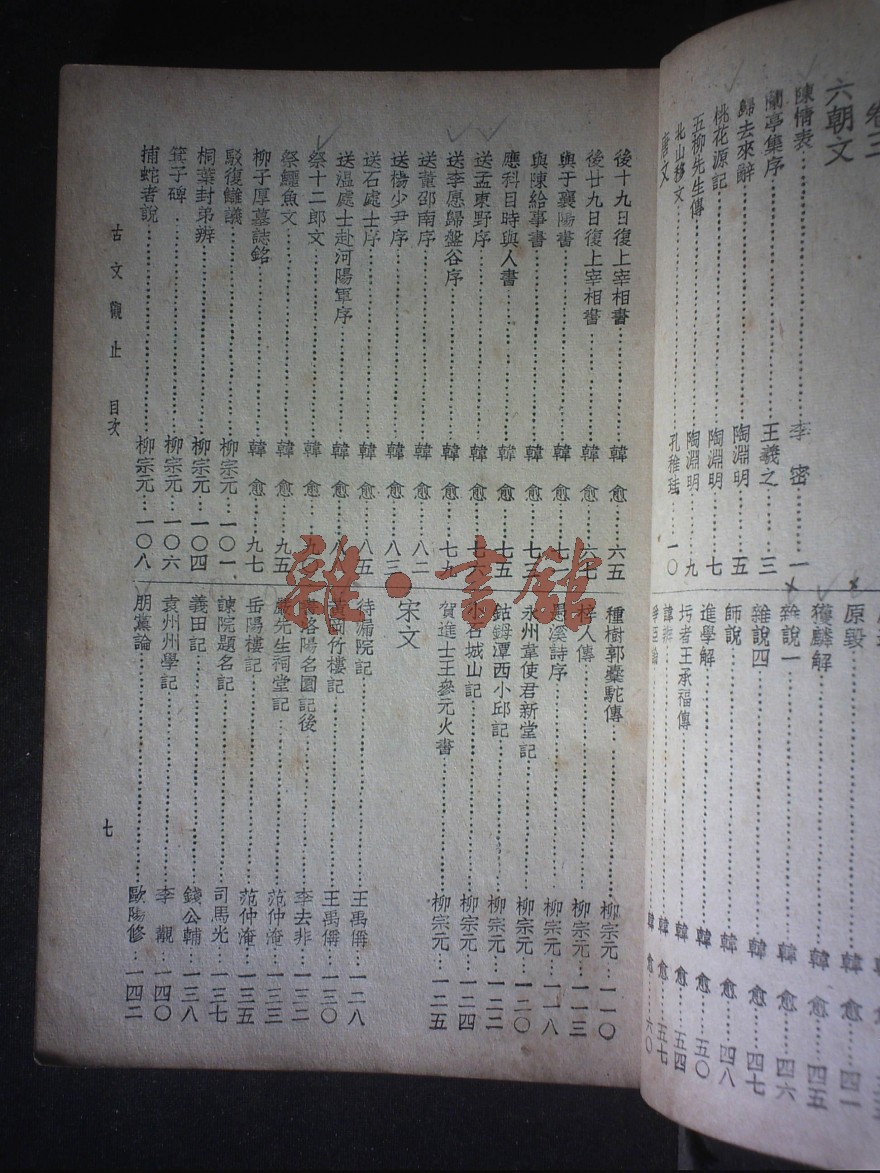 卷三
六朝文
陳情表 李密 一
蘭亭集序 王羲之 三
歸去來辭 陶淵明 五
桃花源記 陶淵明 七
五柳先生傳 陶淵明 九
北山移文 孔稚珪 一〇
唐文
原毀 韓愈 四一
獲麟解 韓愈 四五
雜說一 韓愈 四六
雜說四 韓愈 四七
師說 韓愈 四八
進學解 韓愈 五〇
圬者王承福傳 韓愈 五四
諱辯 韓愈 五七
爭臣論 韓愈 六〇
後十九日復上宰相書 韓愈 六五
後廿九日復上宰相書 韓愈 六七
與于襄陽書 韓愈 七
與陳給事書 韓愈 七三
應科目時與人書 韓愈 七五
送孟東野序 韓愈 七六
送李愿歸盤谷序 韓愈 七九
送董邵南序 韓愈 八二
送楊少尹序 韓愈 八三
送石處士序 韓愈 八五
送溫處士赴河陽軍序 韓愈 八
祭十二郎文 韓愈 九
祭鱷魚文 韓愈 九五
柳子厚墓誌銘 韓愈 九七
駁復讎議 柳宗元 一〇一
桐葉封弟辨 柳宗元 一〇四
箕子碑 柳宗元 一〇六
捕蛇者說 柳宗元 一〇八
種樹郭橐駝傳 柳宗元 一一〇
梓人傳 柳宗元 一一三
愚溪詩序 柳宗元 一一八
永州韋使君新堂記 柳宗元 一二〇
鈷鉧潭西小邱記 柳宗元 一二二
小石城山記 柳宗元 一二四
賀進士王參元火書 柳宗元 一二五
宋文
待漏院記 王禹偁 一二八
黃岡竹樓記 王禹偁 一三〇
書洛陽名園記後 李去非 一三二
嚴先生祠堂記 范仲淹 一三三
岳陽樓記 范仲淹 一三五
諫院題名記 司馬光 一三七
義田記 錢公輔 一三八
袁州州學記 李觀 一四〇
朋黨論 歐陽修 一四二
古文觀止 目次
七
雜·書館